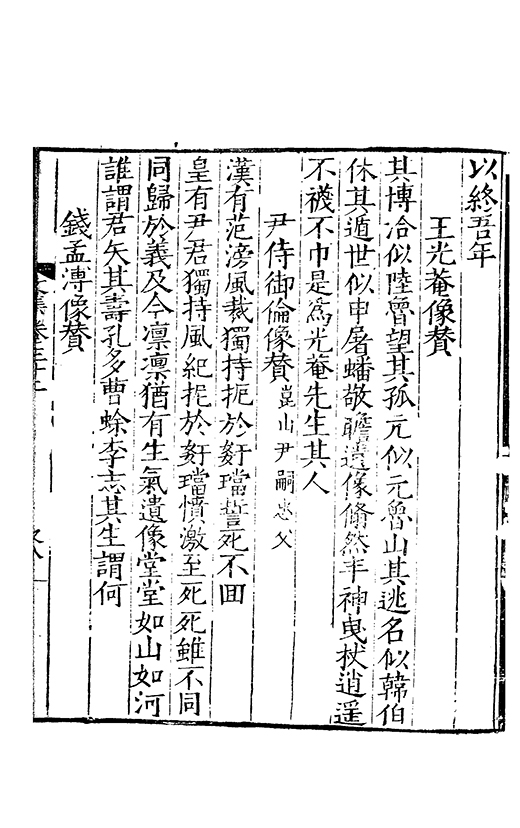 以終吾年
王光菴像贊
其博洽似陸魯望其孤元似元魯山其逃名似韓伯
休其遁世似申屠蟠敬瞻遺像翛然丰神曳杖逍遥
不襪不巾是爲光菴先生其人
尹侍御倫像贊崑山尹嗣忠父
漢有范滂風裁獨持扼於姧璫誓死不囬
皇有尹君獨持風紀扼於姧璫憤激至死死雖不同
同歸於義及今凛凛猶有生氣遺像堂堂如山如河
誰謂君矢其壽孔多曹蜍李志其生謂何
錢孟溥像贊
文集卷三十二